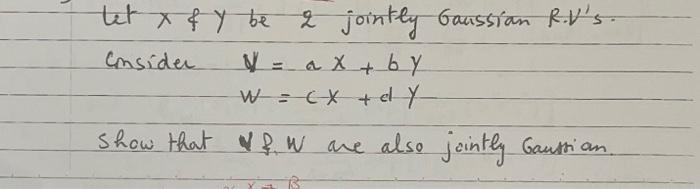 Let X & Y be 2 jointly Gaussian R.V's.
Consider V = aX + bY
W = cX + dY
Show that V & W are also jointly Gaussian.